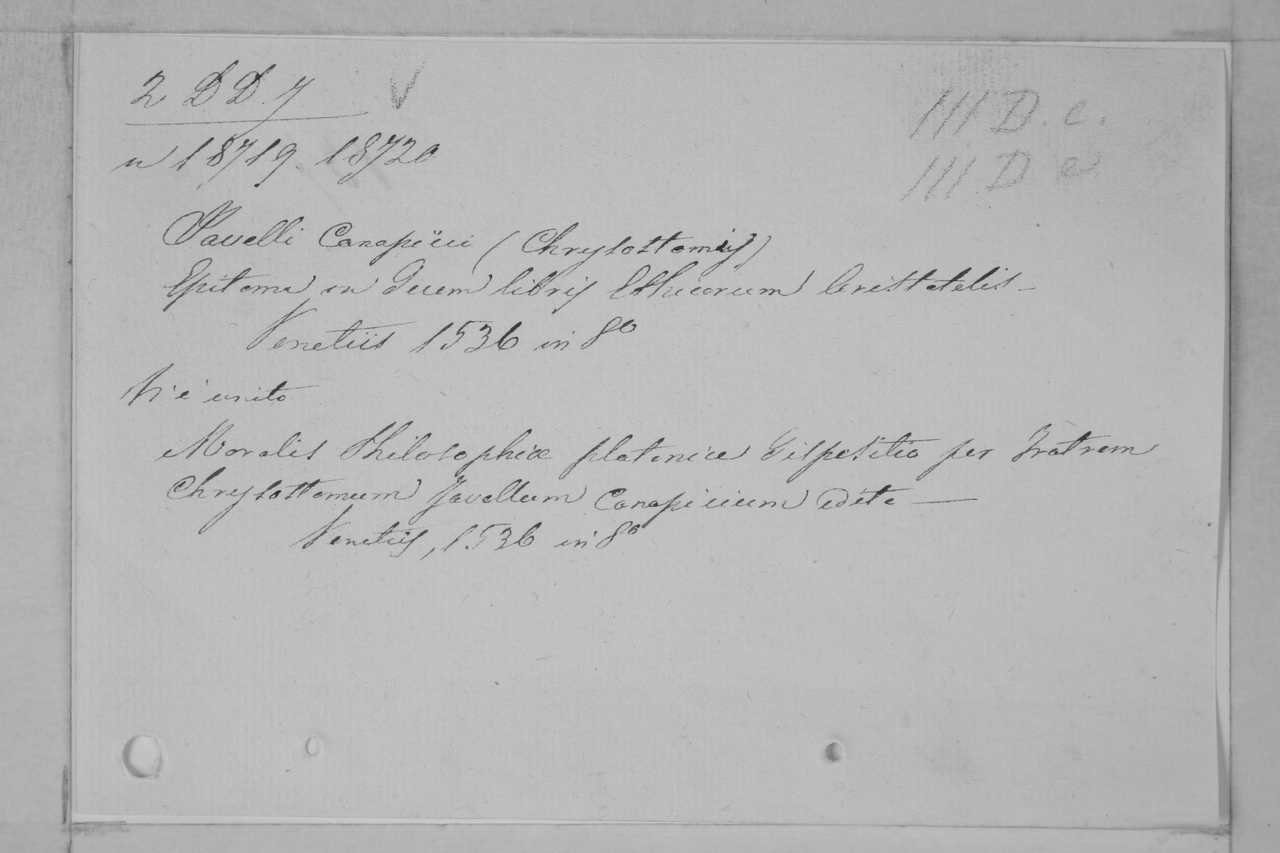 2 D D. 7
III D. c.
n 18719. 18720
III D c
Javelli Canapicii (Chrysostomi)
Epitome in decem libris Ethicorum Aristotelis -
Venetiis 1536 in 8º
Vi è unito
Moralis Philosophiæ platonicæ dispositio per Fratrem
Chrysostomum Javellum Canapicium edita —
Venetiis, 1536 in 8º